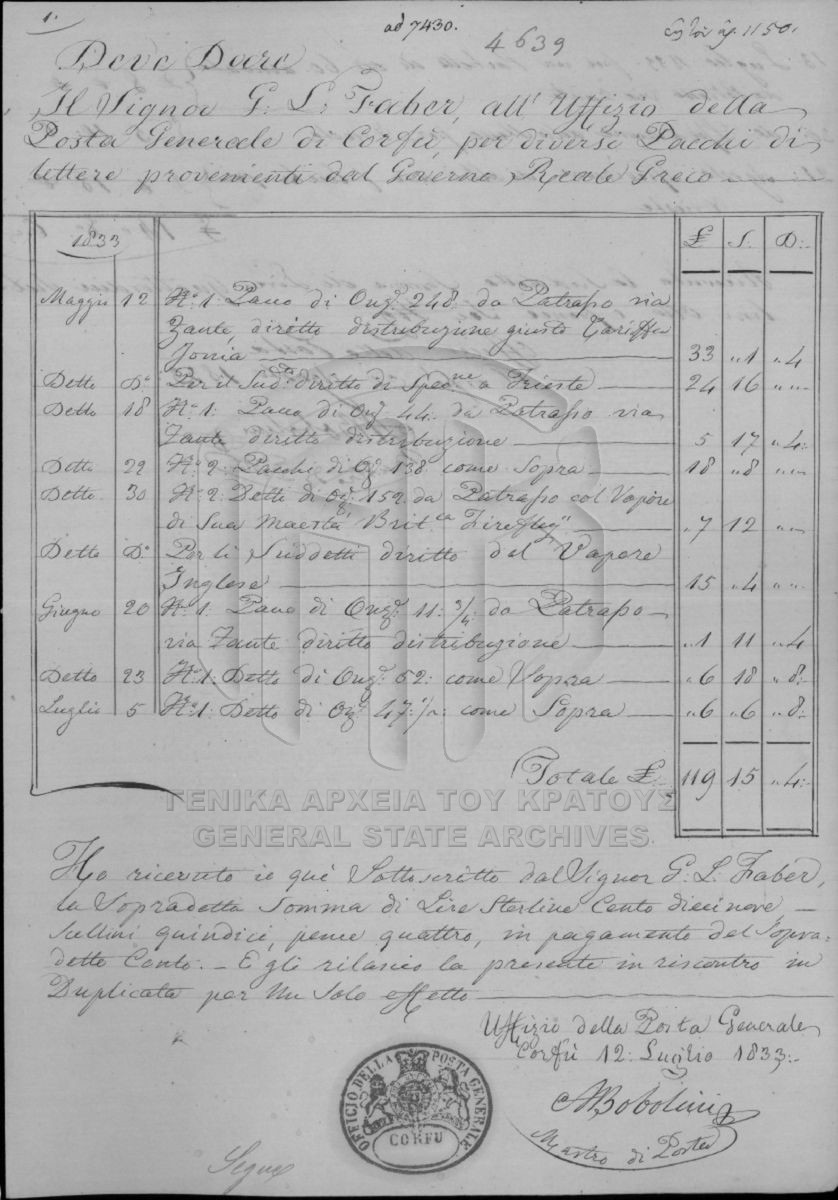 1.
ad 7430.
4639
1150.
Deve Dare
Il Signor G: L: Faber, all' Uffizio della
Posta Generale di Corfù, per diversi Pacchi di
lettere provenienti dal Governo Reale Greco
1833
£ S: D:
Maggio 12 N:o 1: Pacco di Onz: 248: da Patrasso via
Zante, diritto distribuzione giusto Tariffa
Jonia 33 "1 "4
Detto D:o Per il Sud:to diritto di Sped:ne a Trieste 24 16 " "
Detto 18 N:o 1: Pacco di Onz: 44: da Patrasso via
Zante diritto distribuzione 5 17 "4:
Detto 22 N:o 2: Pacchi di Oz: 138 come Sopra 18 "8 " "
Detto 30 N:o 2: Detti di Oz: 152 da Patrasso col Vapore
di Sua Maestà Brit:ca "Firefly" "7 12 " "
Detto D:o Per li Suddetti diritto del Vapore
Inglese 15 "4 " "
Giugno 20 N:o 1: Pacco di Onz: 11: 3/4: da Patrasso
via Zante diritto distribuzione "1 11 "4
Detto 23 N:o 1: Detto di Onz: 52: come Sopra "6 18 "8:
Luglio 5 N:o 1: Detto di Oz: 47: 1/2: come Sopra "6 "6 "8:
Totale £: 119 15 "4:
ΓΕΝΙΚΑ ΑΡΧΕΙΑ ΤΟΥ ΚΡΑΤΟΥΣ
GENERAL STATE ARCHIVES
Ho ricevuto io quì Sottoscritto dal Signor G: L: Faber,
la Sopradetta Somma di Lire Sterline Cento diecinove
Scellini quindici, pence quattro, in pagamento del Sopra-
detto Conto. - E gli rilascio la presente in riscontro in
Duplicata per un Solo effetto
Uffizio della Posta Generale
Corfù 12: Luglio 1833:
A Bobolini
Mastro di Posta
OFFICIO DELLA POSTA GENERALE
CORFU
Segue